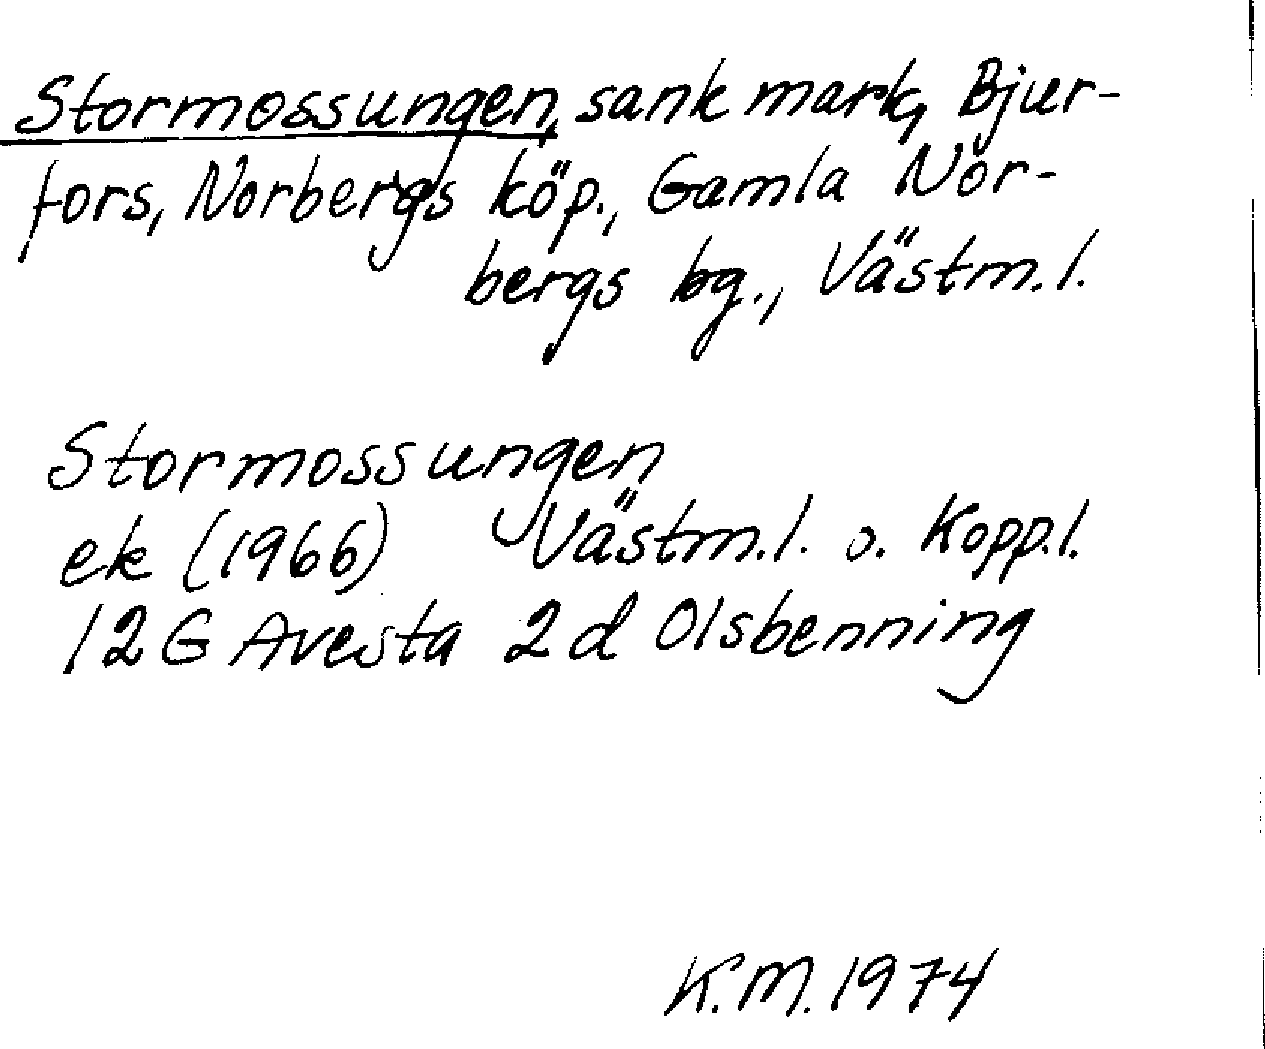 Stormossungen, sank mark, Bjur-
fors, Norbergs köp., Gamla Nor-
bergs bg., Västm.l.
Stormossungen
ek (1966) Västm.l. o. Kopp.l.
12G Avesta 2d Olsbenning
K.M. 1974